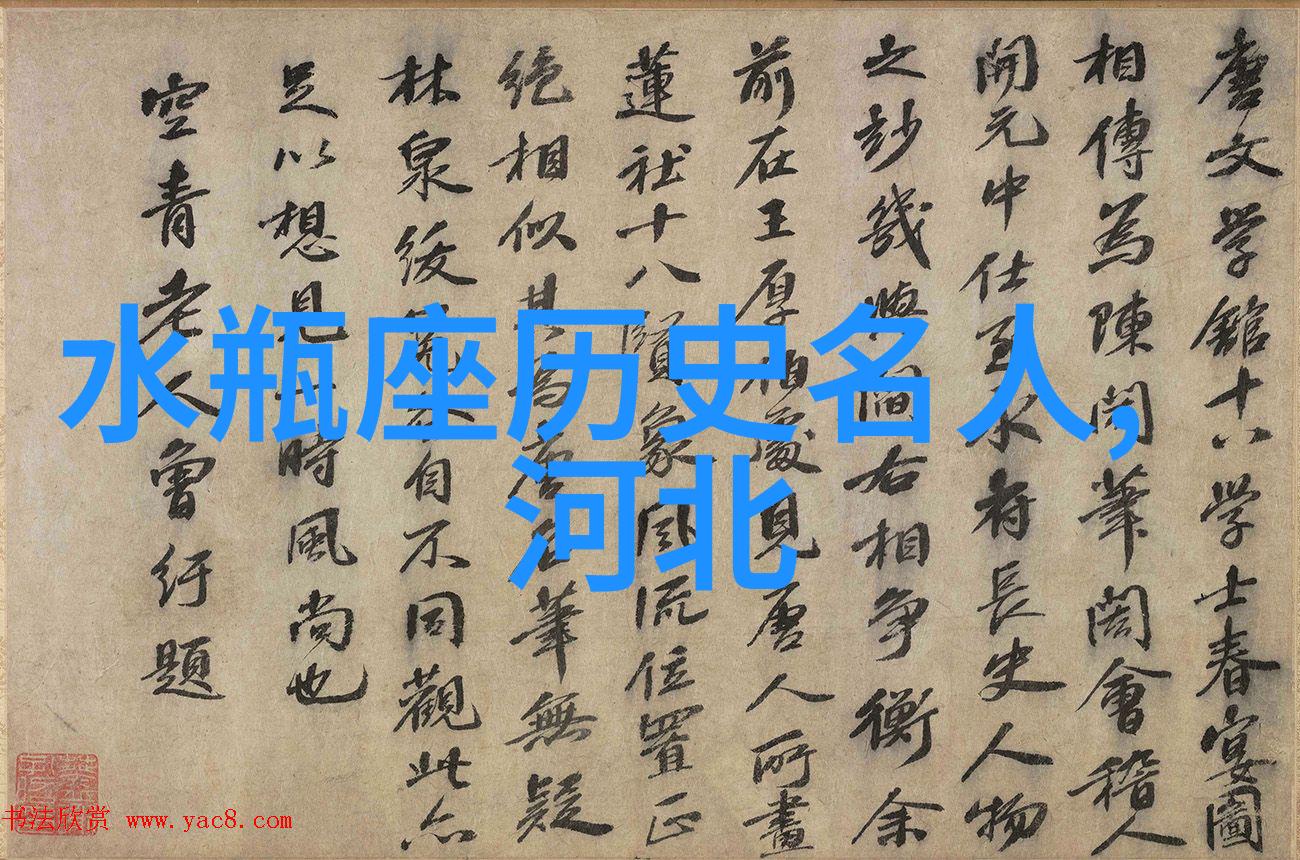 唐文学館十八学士春宴圖
相傳為陳閎筆閎會稽人
開元中仕至永府長史人物
之妙幾與閻右相争衡余
前在王厚伯處見唐人所畫
蓮社十八賢象風流位置正
絶相似其為唐名筆無疑
林泉後
自不同觀此亦
足以想見一時風尚也
空青老人曾紆題
水瓶座历史名人,
河北
书法欣赏 www.yac8.com